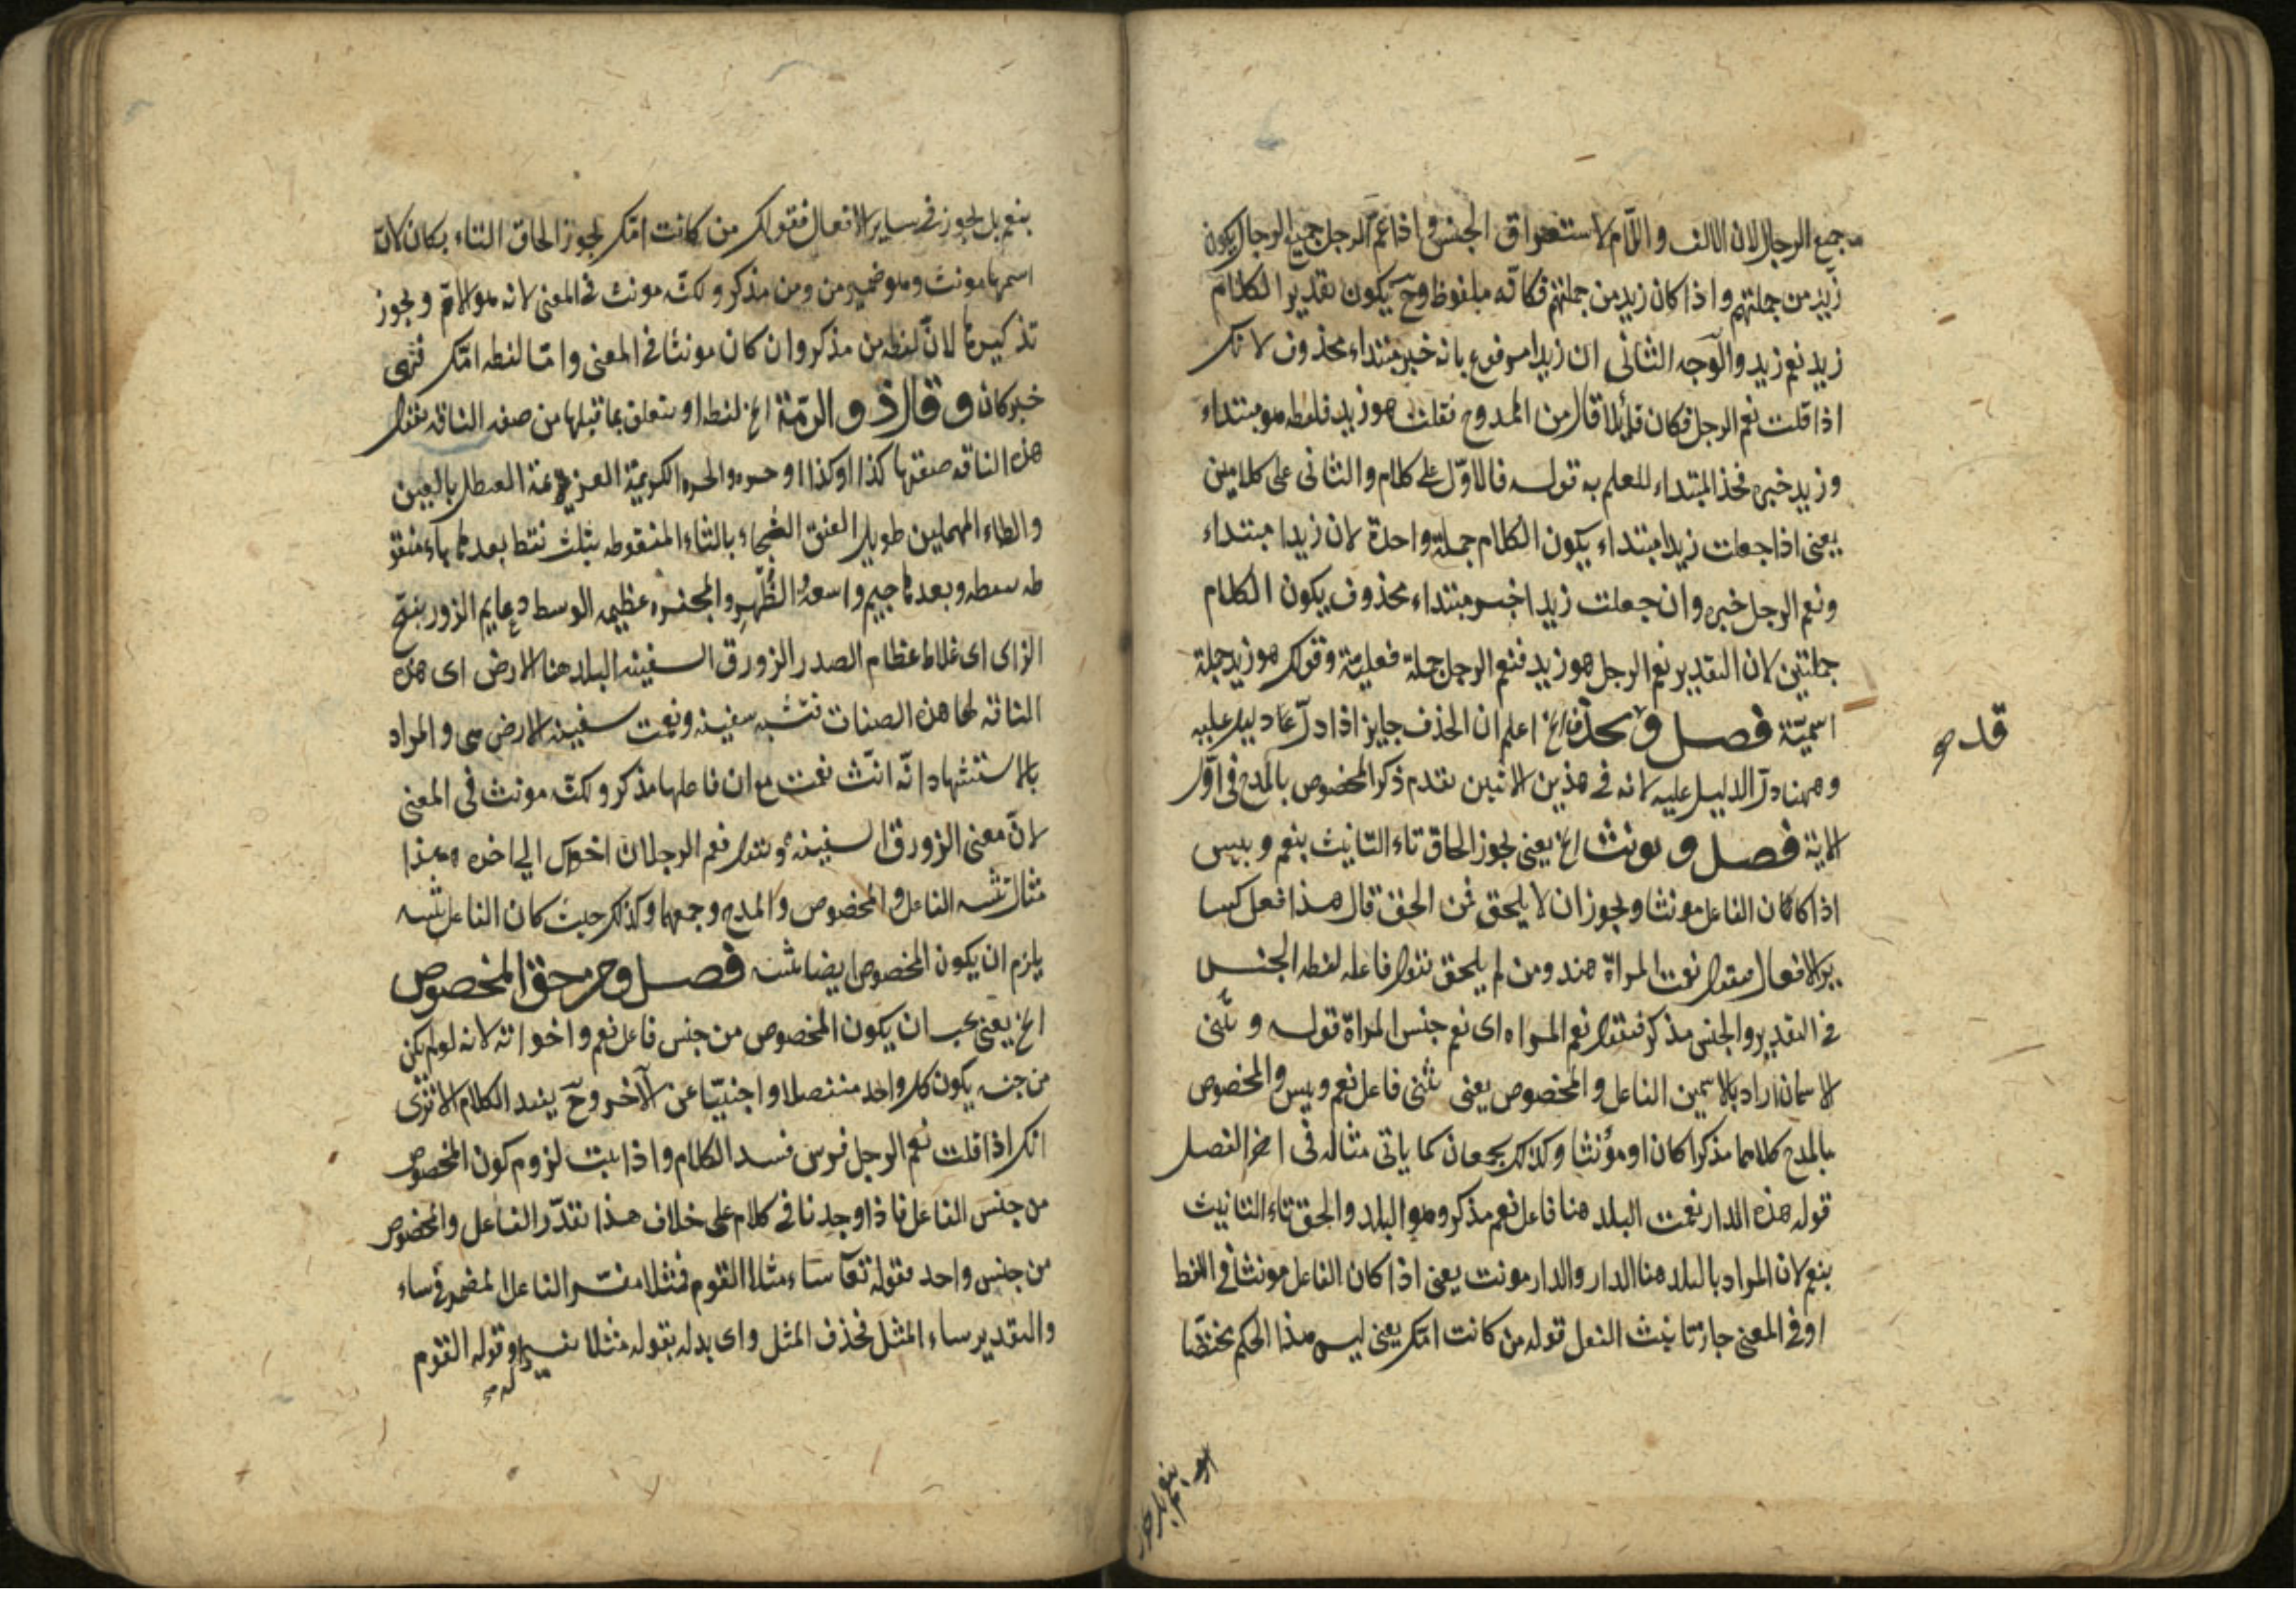 جميع الرجال لان الالف واللّام لاستغراق الجنس واذا عمّ الرجل جميع الرجال يكون
زيد من جملتهم واذا كان زيد من جملتهم فكانّه ملفوظ وحّ يكون تقدير الكلام
زيد نعم زيد والوجه الثانى ان زيدا مرفوع بانه خبر مبتداء محذوف لانك
اذا قلت نعم الرجل فكان قايلا قال من الممدوح فقلت هو زيد فلفظه هو مبتداء
وزيد خبره فحذ المبتداء للعلم به قوله فالاوّل على كلام والثانى على كلامين
يعنى اذا جعلت زيدا مبتداء يكون الكلام جملة واحدة لان زيدا مبتداء
ونعم الرجل خبره وان جعلت زيدا خبر مبتداء محذوف يكون الكلام
جملتين لان التقدير نعم الرجل هو زيد فنعم الرجل جملة فعلية وقولك هو زيد جملة
اسميّة فصل وقد يحذف الخ اعلم ان الحذف جايز اذا دلّ عليه دليل
قد صح
وههنا دلّ الدليل عليه لانه فى هذين الاثنين تقدم ذكر المخصوص بالمدح فى اوّل
الاية فصل ويونث الخ يعنى يجوز الحاق تاء التانيث بنعم وبيس
اذا كان الفاعل مونثا ويجوز ان لا يلحق فمن الحق قال هذا فعل كسا
ير الافعال فتقول نعمت المراة هند ومن لم يلحق نقول فاعله لفظه الجنس
فى التقدير والجنس مذكر فتقول نعم المراه اى نعم جنس المراة قوله ويثنى
الاسمان اراد بالاسمين الفاعل والمخصوص يعنى يثنى فاعل نعم وبيس والمخصوص
بالمدح كلاهما مذكرا كان او مؤنثا وكذلك يجمعان كما ياتى مثاله فى اخر الفصل
قوله هذه الدار نعمت البلد هنا فاعل نعم مذكر وهو البلد والحق تاء التانيث
بنعم لان المراد بالبلد هنا الدار والدار مونث يعنى اذا كان الفاعل مونثا فى اللفظ
او فى المعنى جاز تانيث الفعل قوله من كانت امّك يعنى ليس هذا الحكم مختصّا
بنعم بل يجوز
بنعم بل يجوز فى ساير الافعال فقولك من كانت امّك يجوز الحاق التاء بكان لانّ
اسمها مونث وهو ضمير من ومن مذكر ولكنّه مونث فى المعنى لانه هو الامّ ويجوز
تذكيرها لانّ لفظه من مذكر وان كان مونثا فى المعنى وامّا لفظه امّك فهى
خبر كان وقال ذو الرمّة الخ لفظه او متعلق بما قبلها من صفه الناقه فتقول
هذه الناقه صفتها كذا او كذا او حره والحره الكريمة العزيزة العيطل بالعين
والطاء المهملين طويل العنق الثبجاء بالثاء المنقوطه بثلث نقط بعدها باء منقو
طه بنقطه وبعدها جيم واسعة الظّهر والمجفره عظيمه الوسط دعايم الزور بفتح
الزاى اى غلاظ عظام الصدر الزورق السفينه البلد هنا الارض اى هذه
الناقه لها هذه الصفات فتشبه سفينه ونعمت سفينه الارض هى والمراد
بالاستشهاد انّه انّث نعمت مع ان فاعلها مذكر ولكنّه مونث فى المعنى
لانّ معنى الزورق السفينة وتقول نعم الرجلان اخواك الى اخره هذا
مثال تثنيه الفاعل والمخصوص والمدح وجمعها وكذلك حيث كان الفاعل تثنيه
يلزم ان يكون المخصوص ايضا تثنيه فصل ومن حق المخصوص
الخ يعنى يجب ان يكون المخصوص من جنس فاعل نعم واخواته لانه لو لم يكن
من جنسه يكون كل واحد منفصلا واجنبيّا عن الآخر وحّ يفسد الكلام الا ترى
انك اذا قلت نعم الرجل فرس فسد الكلام واذا ثبت لزوم كون المخصوص
من جنس الفاعل فاذا وجدنا فى كلام على خلاف هذا نقدّر الفاعل والمخصوص
من جنس واحد فقوله تعآ ساء مثلا القوم فمثلا مفسّر الفاعل المضمر فى ساء
والتقدير ساء المثل فحذف المثل واى بدله بقوله مثلا تفسيرا له وقوله القوم